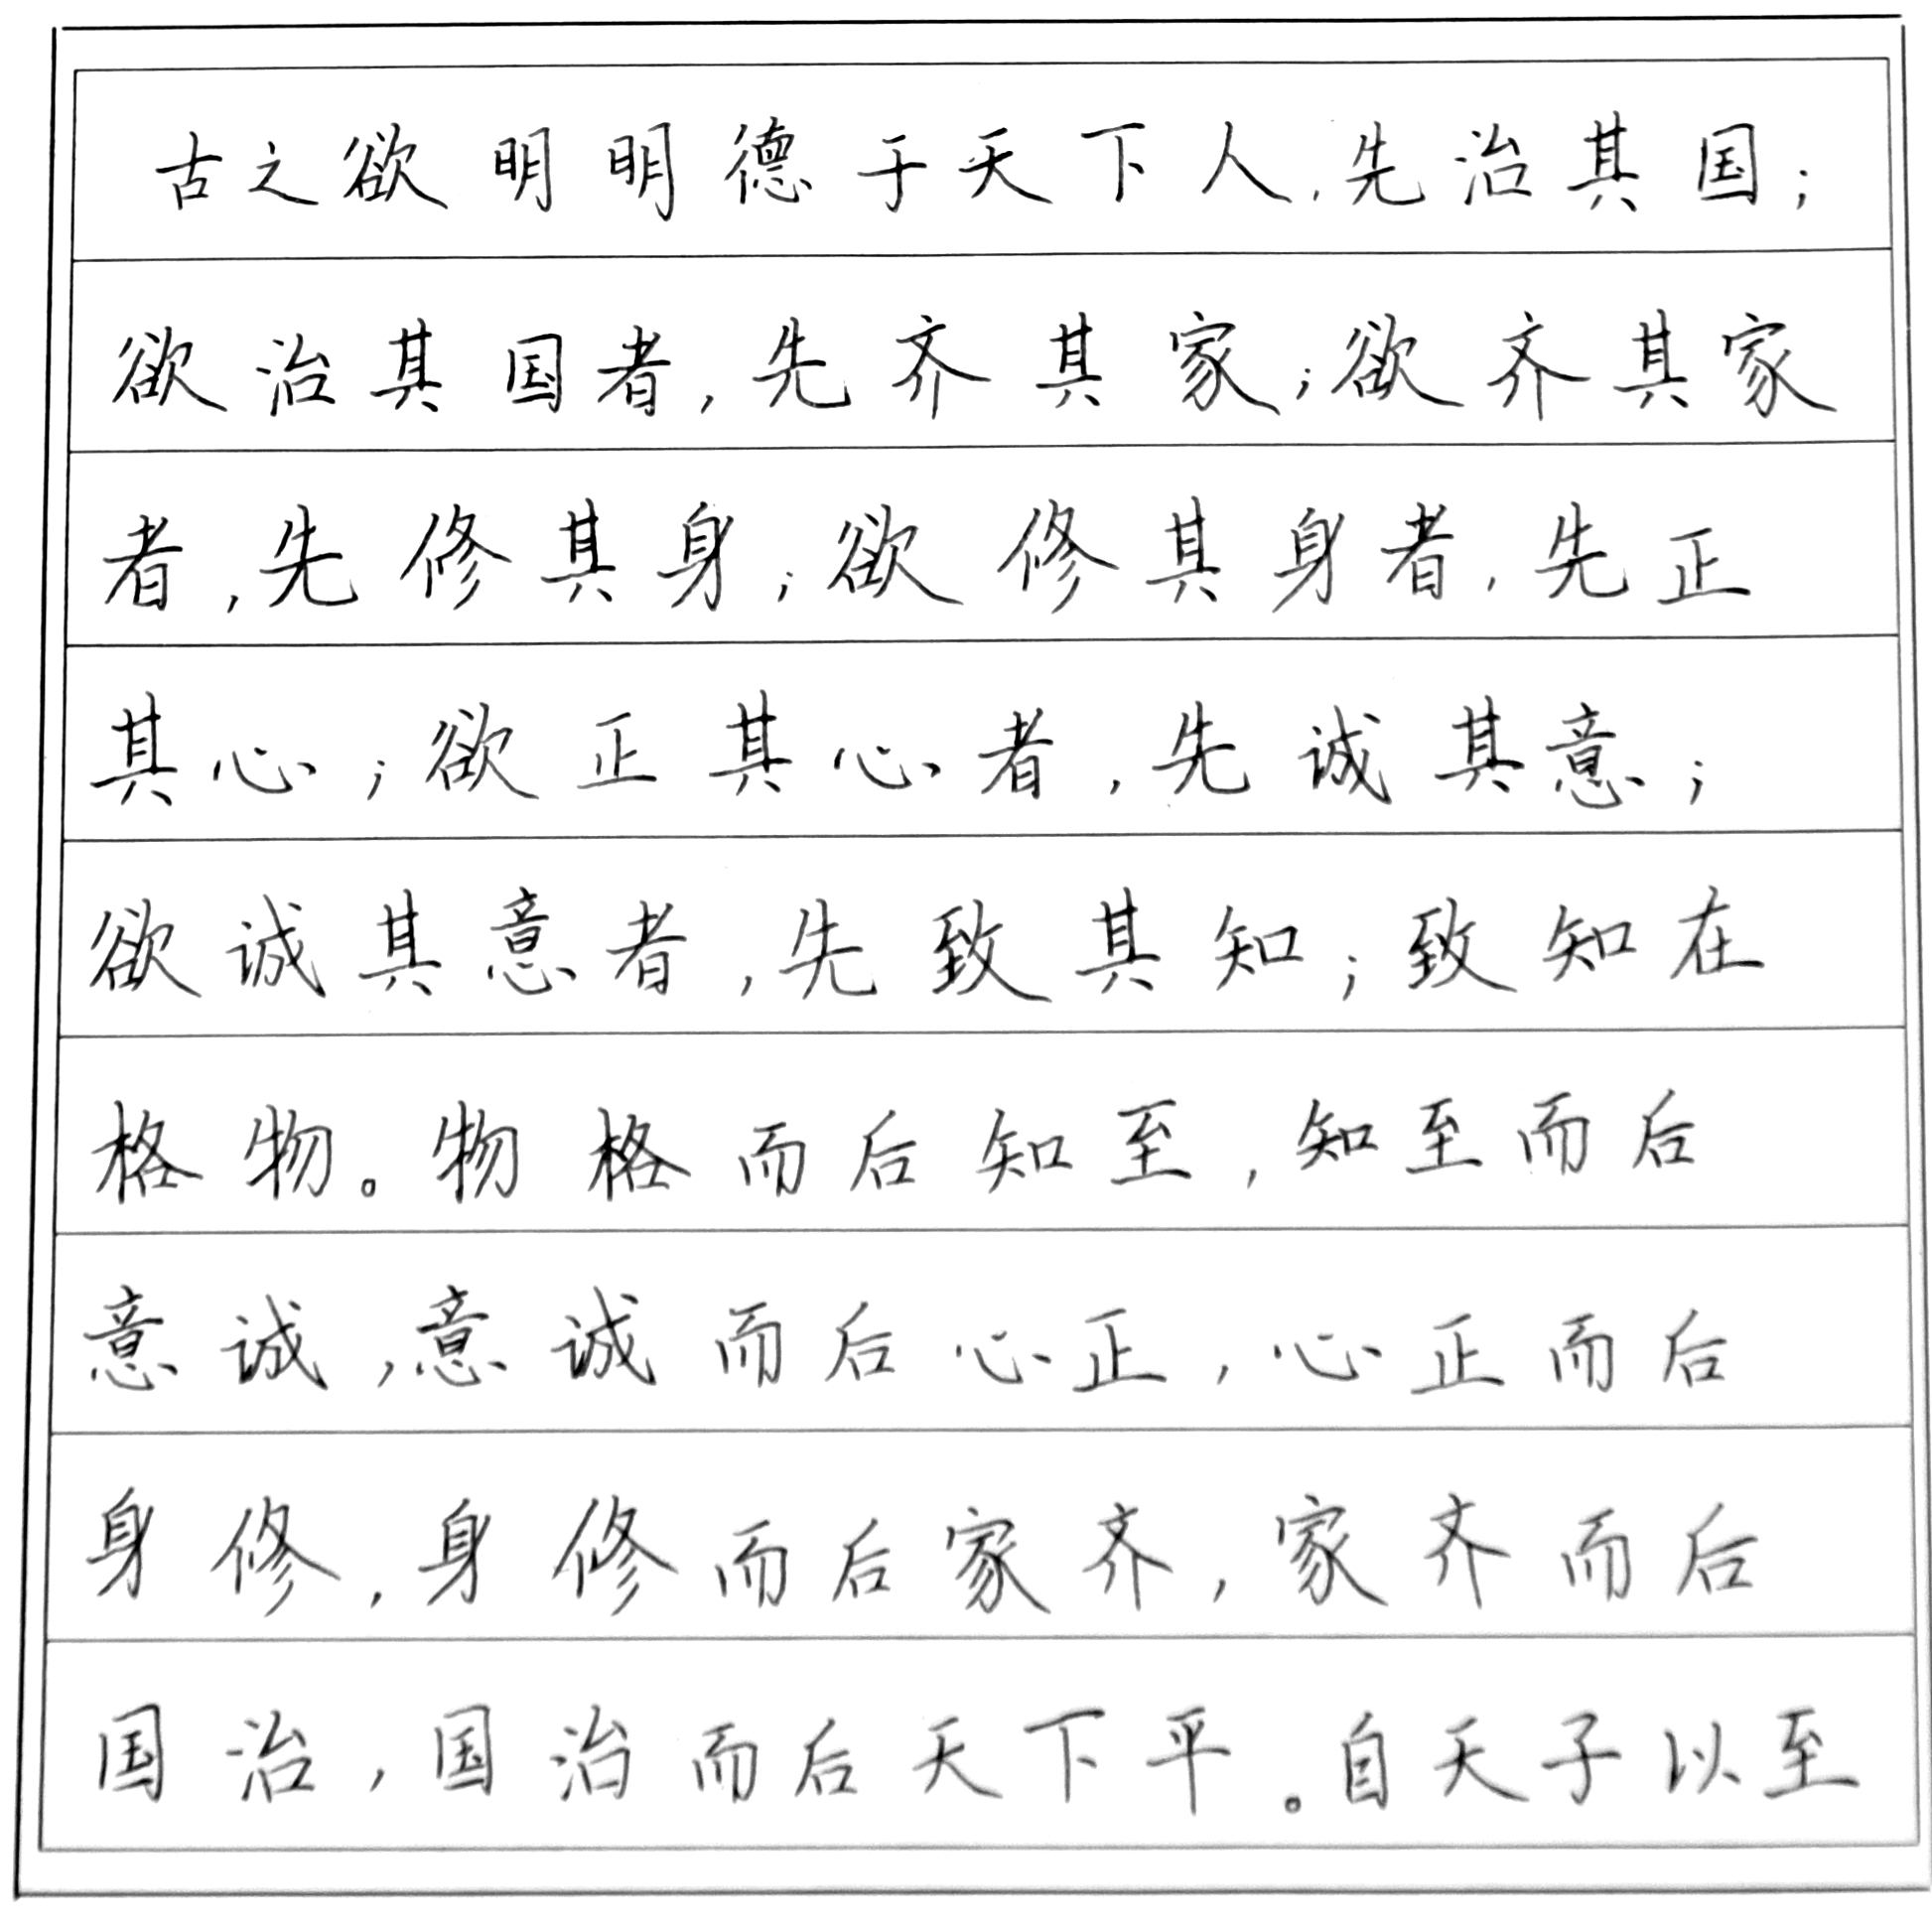 古之欲明明德于天下人,先治其国;
欲治其国者,先齐其家;欲齐其家
者,先修其身;欲修其身者,先正
其心;欲正其心者,先诚其意;
欲诚其意者,先致其知;致知在
格物。物格而后知至,知至而后
意诚,意诚而后心正,心正而后
身修,身修而后家齐,家齐而后
国治,国治而后天下平。自天子以至